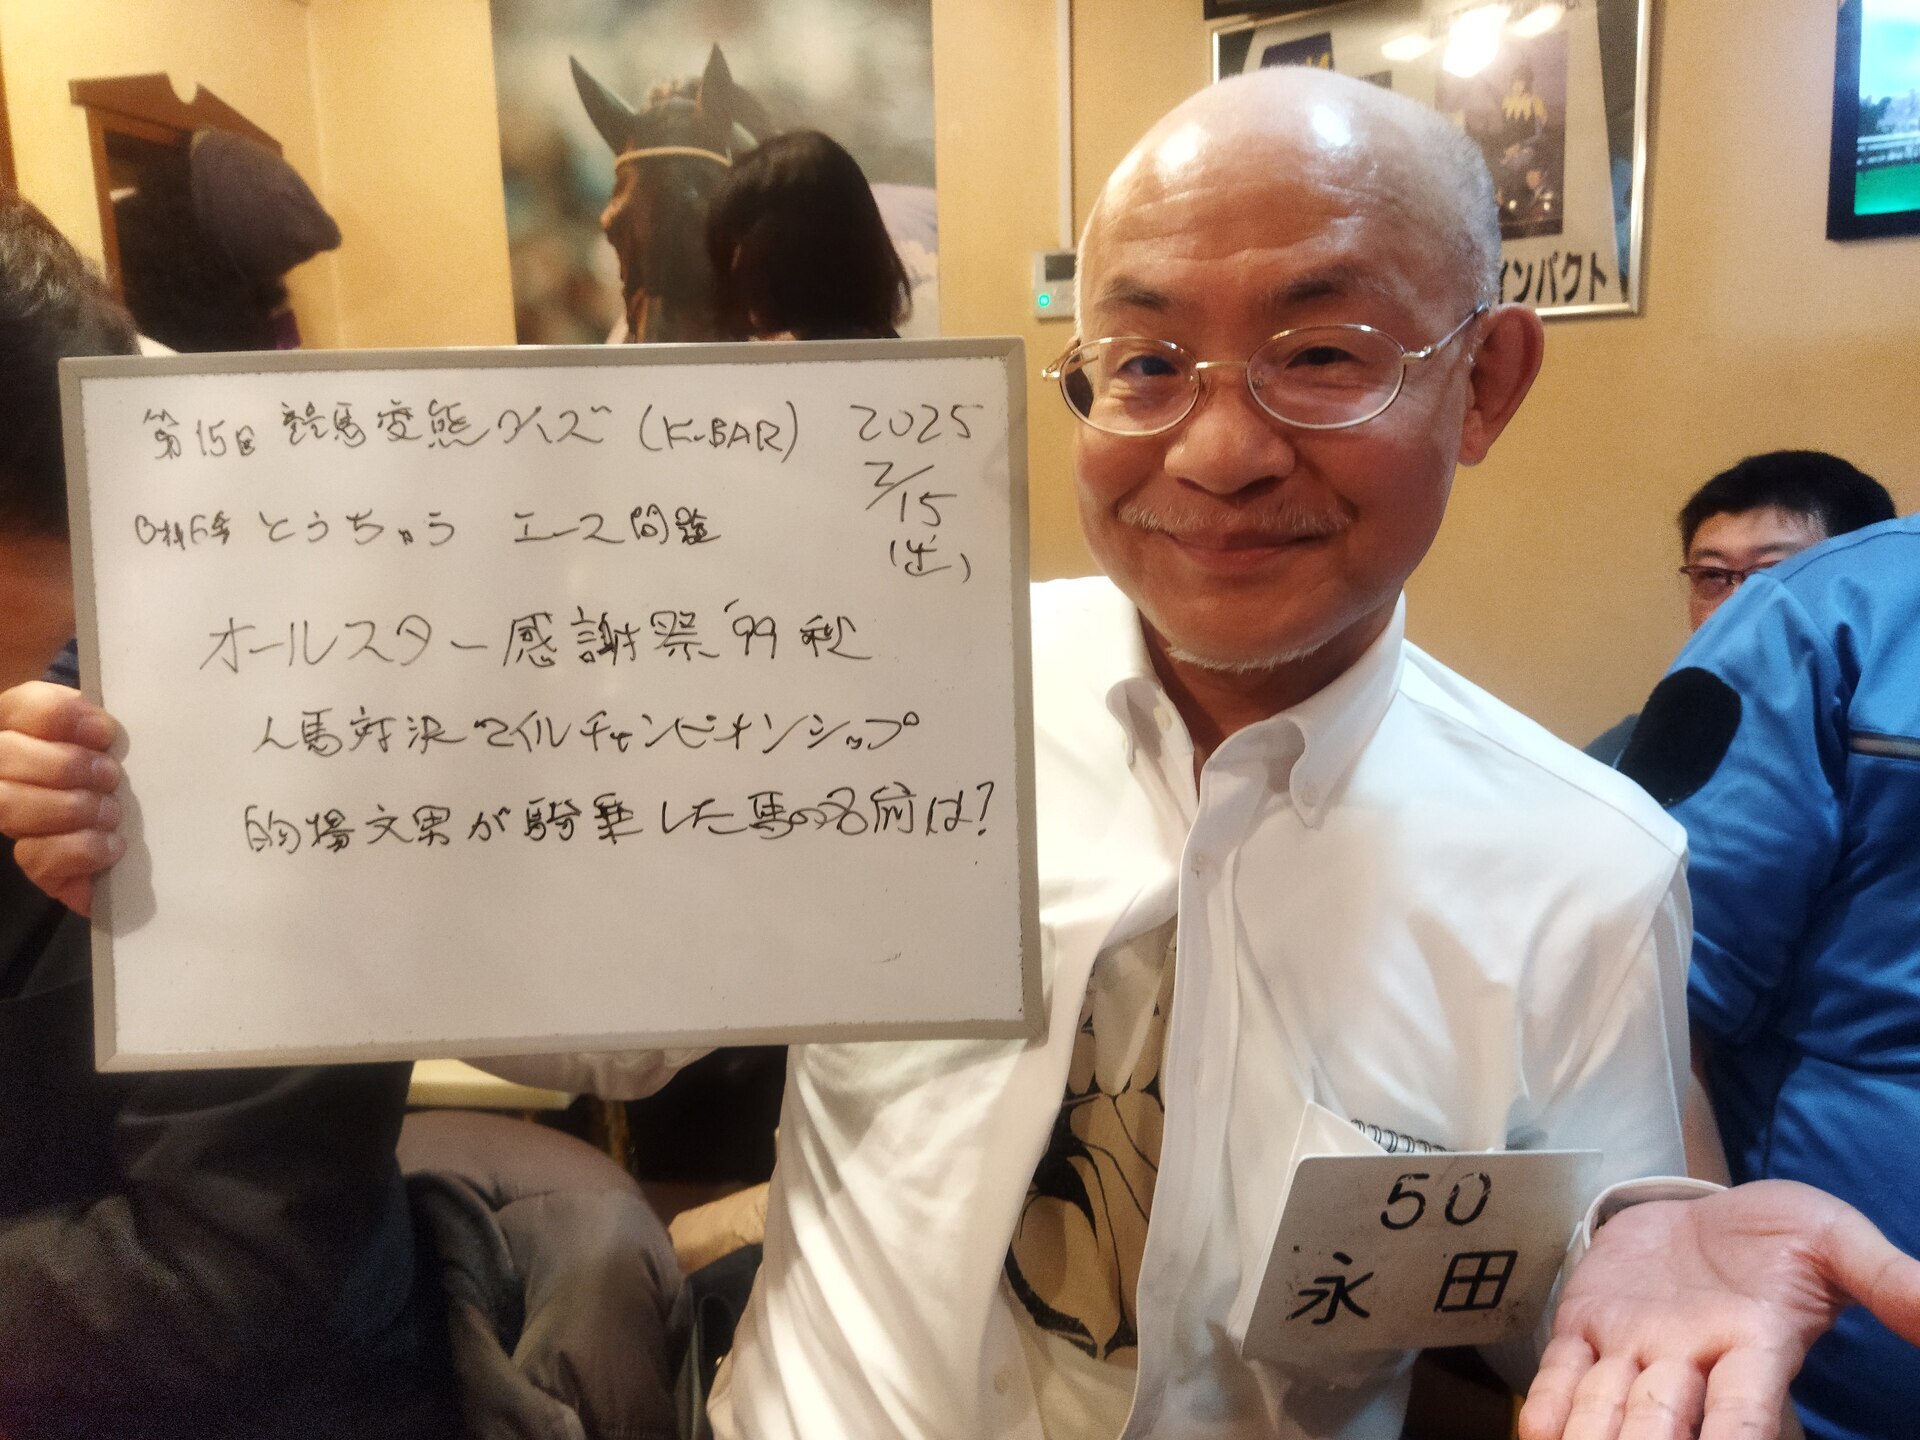 第15回 競馬変態クイズ (K-BAR) 2025
2/15
(土)
とうちゅう エース問題
オールスター感謝祭'99秋
人馬対決マイルチャンピオンシップ
的場文男が騎乗した馬の名前は?
インパクト
50
永田